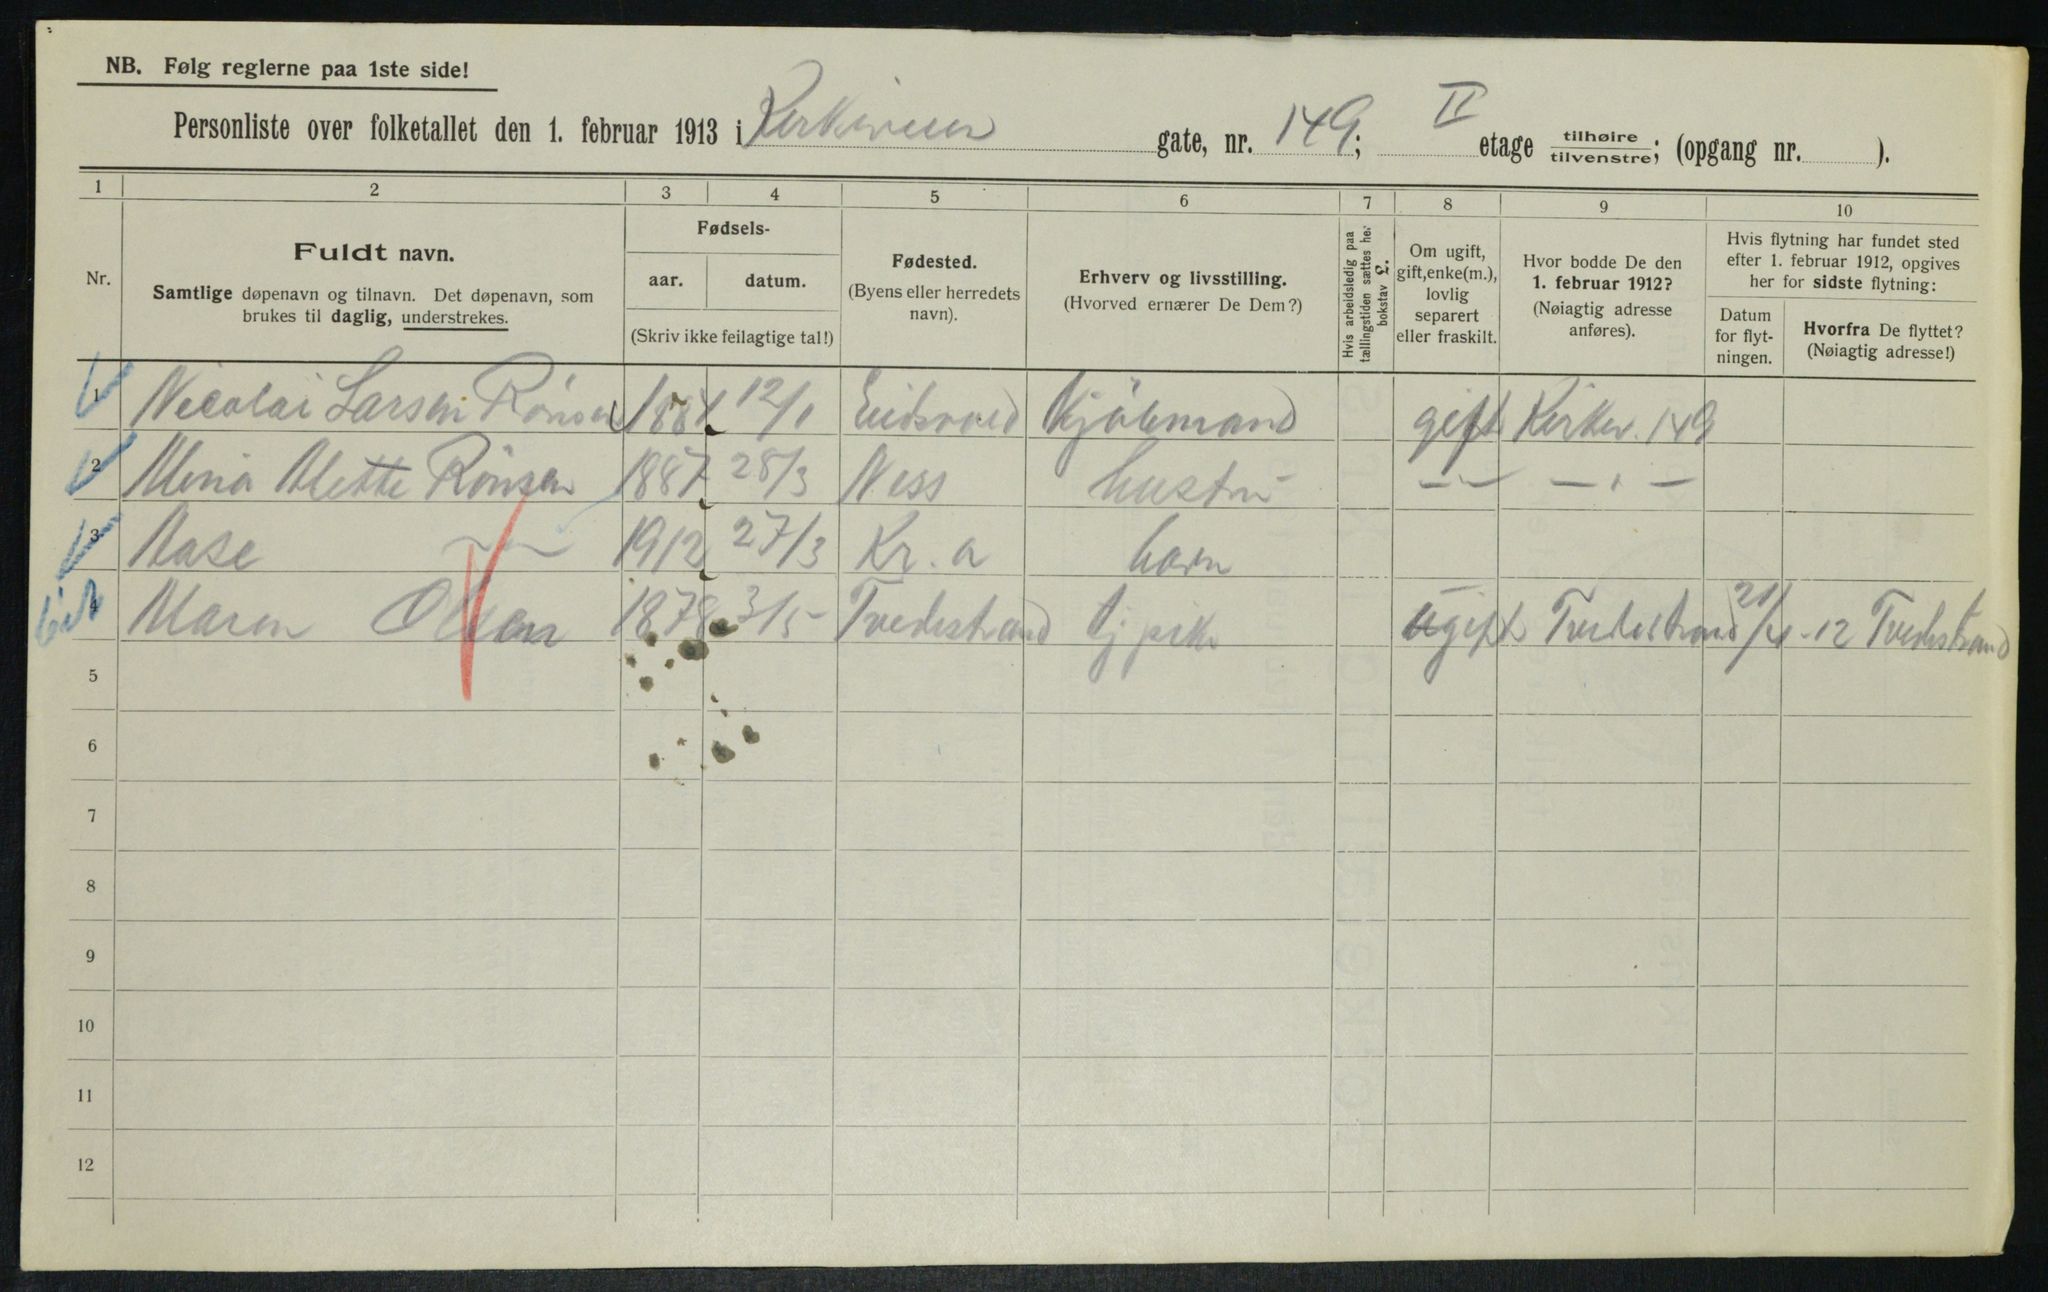 NB. Følg reglerne paa 1ste side!
Personliste over folketallet den 1. februar 1913 i Kirkeveien gate, nr. 149; II etage tilhøire/tilvenstre; (opgang nr. ).
1 2 3 4 5 6 7 8 9 10
Nr.
Fuldt navn.
Samtlige døpenavn og tilnavn. Det døpenavn, som
brukes til daglig, understrekes.
Fødsels-
aar. datum.
(Skriv ikke feilagtige tal!)
Fødested.
(Byens eller herredets
navn).
Erhverv og livsstilling.
(Hvorved ernærer De Dem?)
Hvis arbeidsledig paa
tællingstiden sættes her
bokstav £.
Om ugift,
gift, enke(m.),
lovlig
separert
eller fraskilt.
Hvor bodde De den
1. februar 1912?
(Nøiagtig adresse
anføres).
Hvis flytning har fundet sted
efter 1. februar 1912, opgives
her for sidste flytning:
Datum
for flyt-
ningen.
Hvorfra De flyttet?
(Nøiagtig adresse!)
1 Nicolai Larsen Rönsen 1884 12/1 Eidsvold Kjöbmand gift Kirkev. 149
2 Mina Mette Rönsen 1887 28/3 Ness hustru — — — " —
3 Aase — — 1912 27/3 Kr. a barn
4 Maren Olsen 1878 3/5 Tvedestrand tj pike ugift Tvedestrand 21/4-12 Tvedestrand
5
6
7
8
9
10
11
12